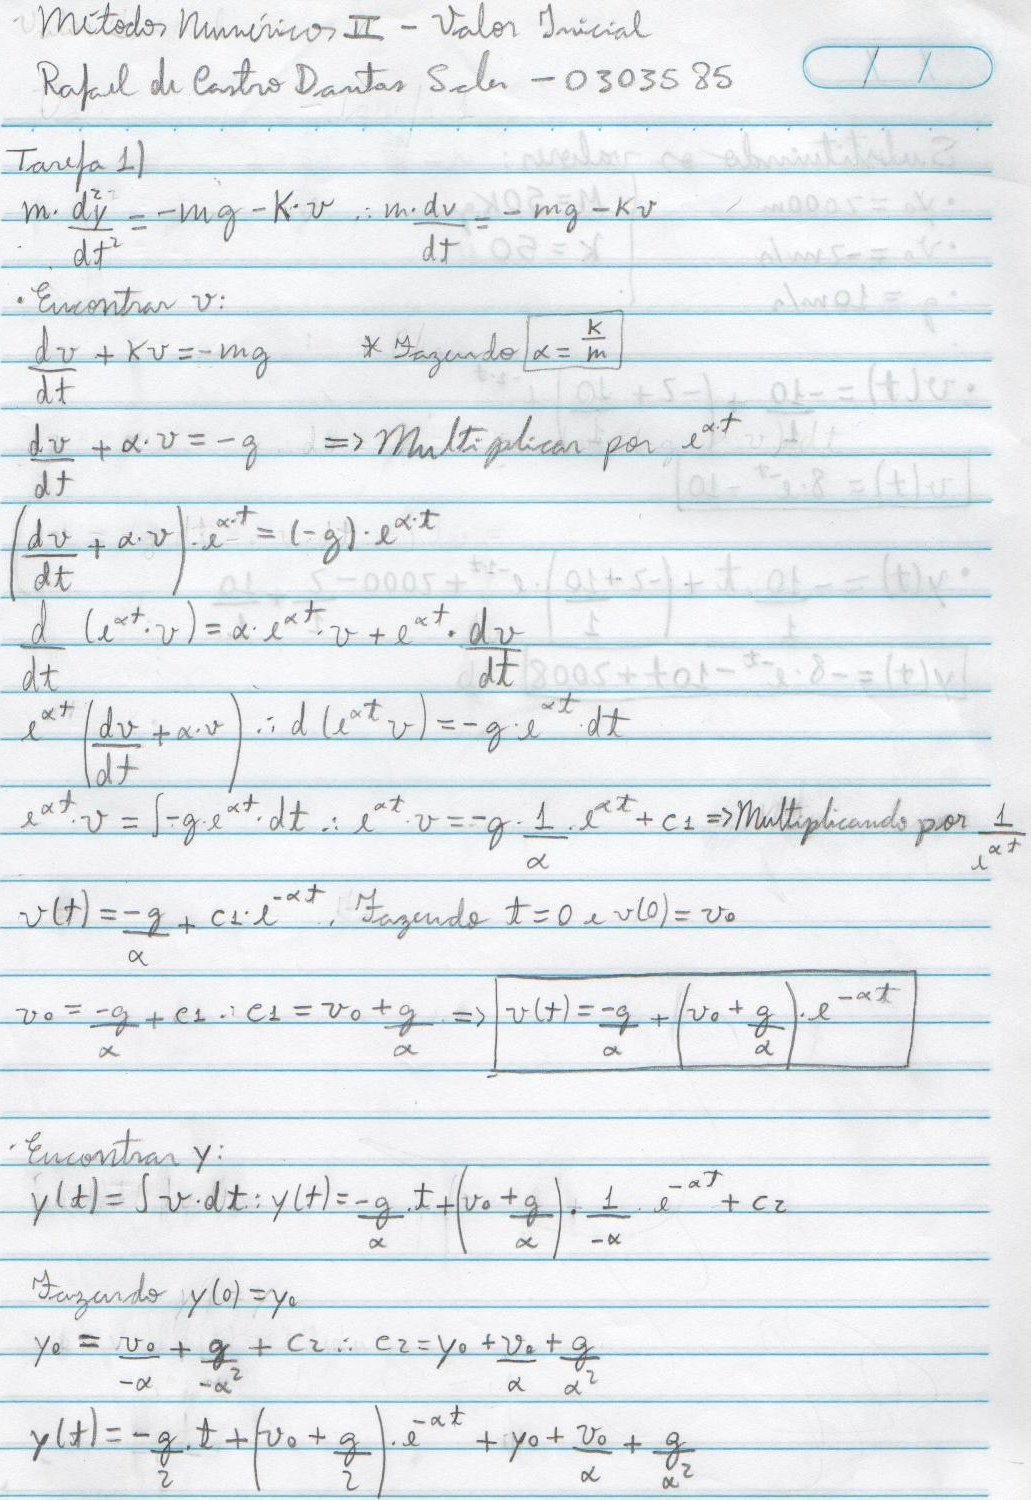 Métodos Numéricos II - Valor Inicial
Rafael de Castro Dantas Sales - 0303585
Tarefa 1)
m· d²y/dt² = -mg - K·v ∴ m·dv/dt = -mg - Kv
· Encontrar v:
dv/dt + Kv = -mg * Fazendo α = K/m
dv/dt + α·v = -g => Multiplicar por e^(α·t)
(dv/dt + α·v)·e^(α·t) = (-g)·e^(α·t)
d/dt (e^(αt)·v) = α·e^(αt)·v + e^(αt)·dv/dt
e^(αt) (dv/dt + α·v) ∴ d(e^(αt) v) = -g·e^(αt)·dt
e^(αt)·v = ∫-g·e^(αt)·dt ∴ e^(αt)·v = -g·1/α·e^(αt) + c1 => Multiplicando por 1/e^(αt)
v(t) = -g/α + c1·e^(-αt). Fazendo t=0 e v(0) = v0
v0 = -g/α + c1 ∴ c1 = v0 + g/α => v(t) = -g/α + (v0 + g/α)·e^(-αt)
· Encontrar y:
y(t) = ∫v·dt ∴ y(t) = -g/α·t + (v0 + g/α)·1/-α·e^(-αt) + c2
Fazendo y(0) = y0
y0 = v0/-α + g/-α² + c2 ∴ c2 = y0 + v0/α + g/α²
y(t) = -g/2·t + (v0 + g/2)·e^(-αt) + y0 + v0/α + g/α²